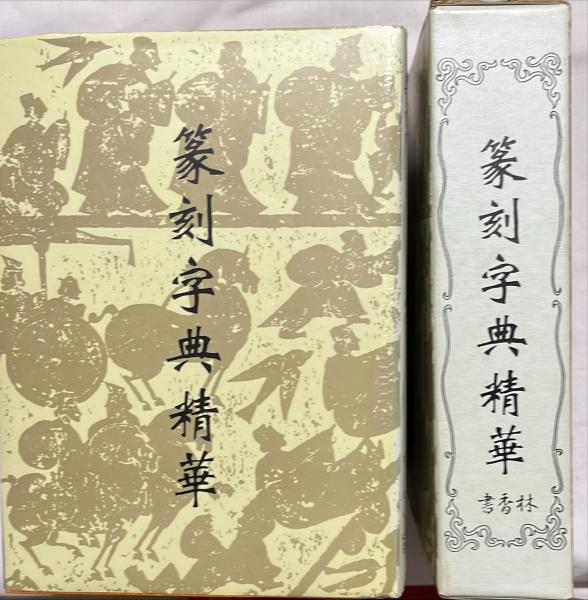 篆刻字典精華
篆刻字典精華
書香林